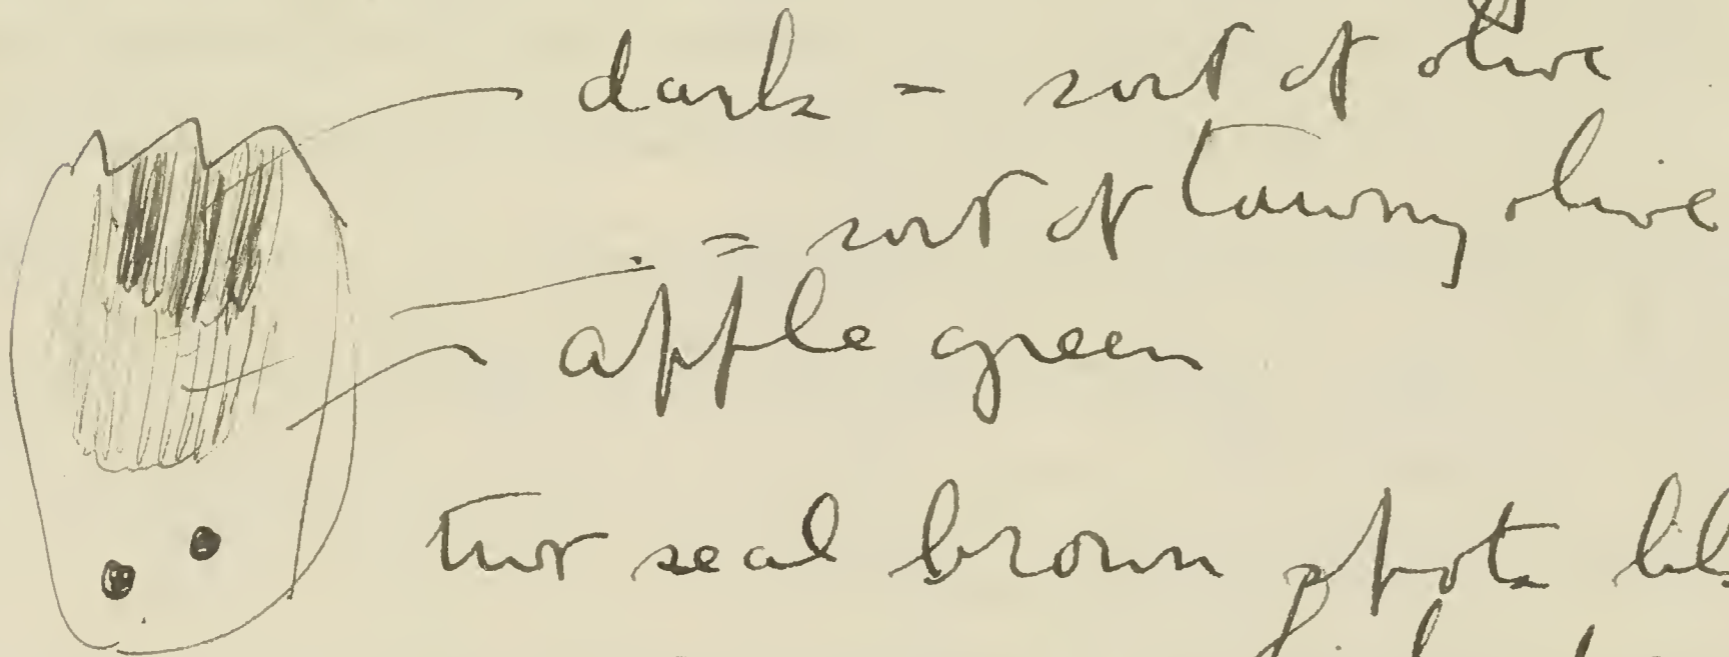 dark - sort of olive
= sort of tawny olive
apple green
two seal brown spots